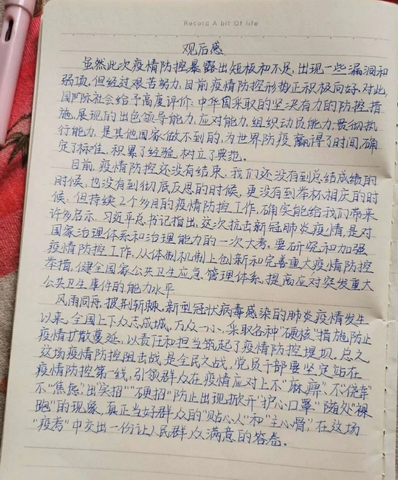 Record A bit Of life
观后感
虽然此次疫情防控暴露出短板和不足,出现一些漏洞和
弱项,但经过艰苦努力,目前疫情防控形势正积极向好,对此
国际社会给予高度评价:中华国采取的坚决有力的防控措
施,展现的出色领导能力、应对能力、组织动员能力、贯彻执
行能力,是其他国家做不到的,为世界防疫赢得了时间,确
定了标准,积累了经验,树立了典范。
目前,疫情防控还没有结束,我们还没有到总结成绩的
时候,也没有到彻底反思的时候,更没有到举杯相庆的时
候,但持续2个多月的疫情防控工作,确实能给我们带来
许多启示。习近平总书记指出,这次抗击新冠肺炎疫情,是对
国家治理体系和治理能力的一次大考,要研究和加强
疫情防控工作,从体制机制上创新和完善重大疫情防控
举措,健全国家公共卫生应急管理体系,提高应对突发重大
公共卫生事件的能力水平
风雨同舟,披荆斩棘,新型冠状病毒感染的肺炎疫情发生
以来,全国上下众志成城,万众一心,采取各种"硬核"措施防止
疫情扩散蔓延,以责任和担当筑起了疫情防控堤坝,总之
这场疫情防控阻击战,是全民久战,党员干部要坚定站在
疫情防控第一线,引领群众在疫情应对上不"麻痹"、不"侥幸"
不"焦虑",出实招""硬招"防止出现掀开"护心口罩""随处"裸
跑"的现象,真正当好群众的"贴心人"和"主心骨",在这场
"疫考"中交出一份让人民群众满意的答卷。